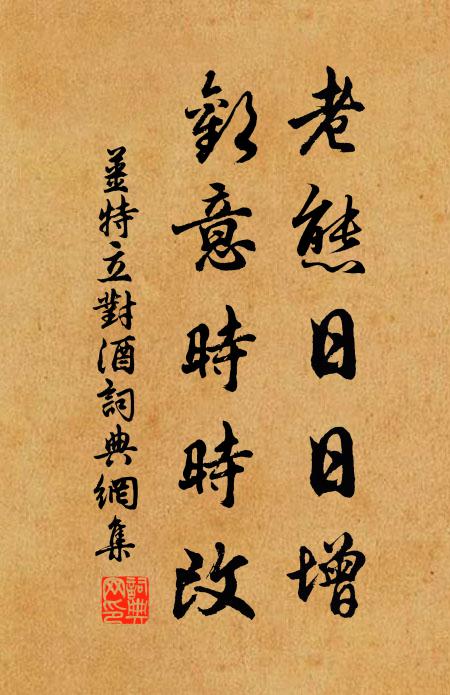 老態日日增
歡意時時改
薑特立對酒詞典網集
詞典
网印